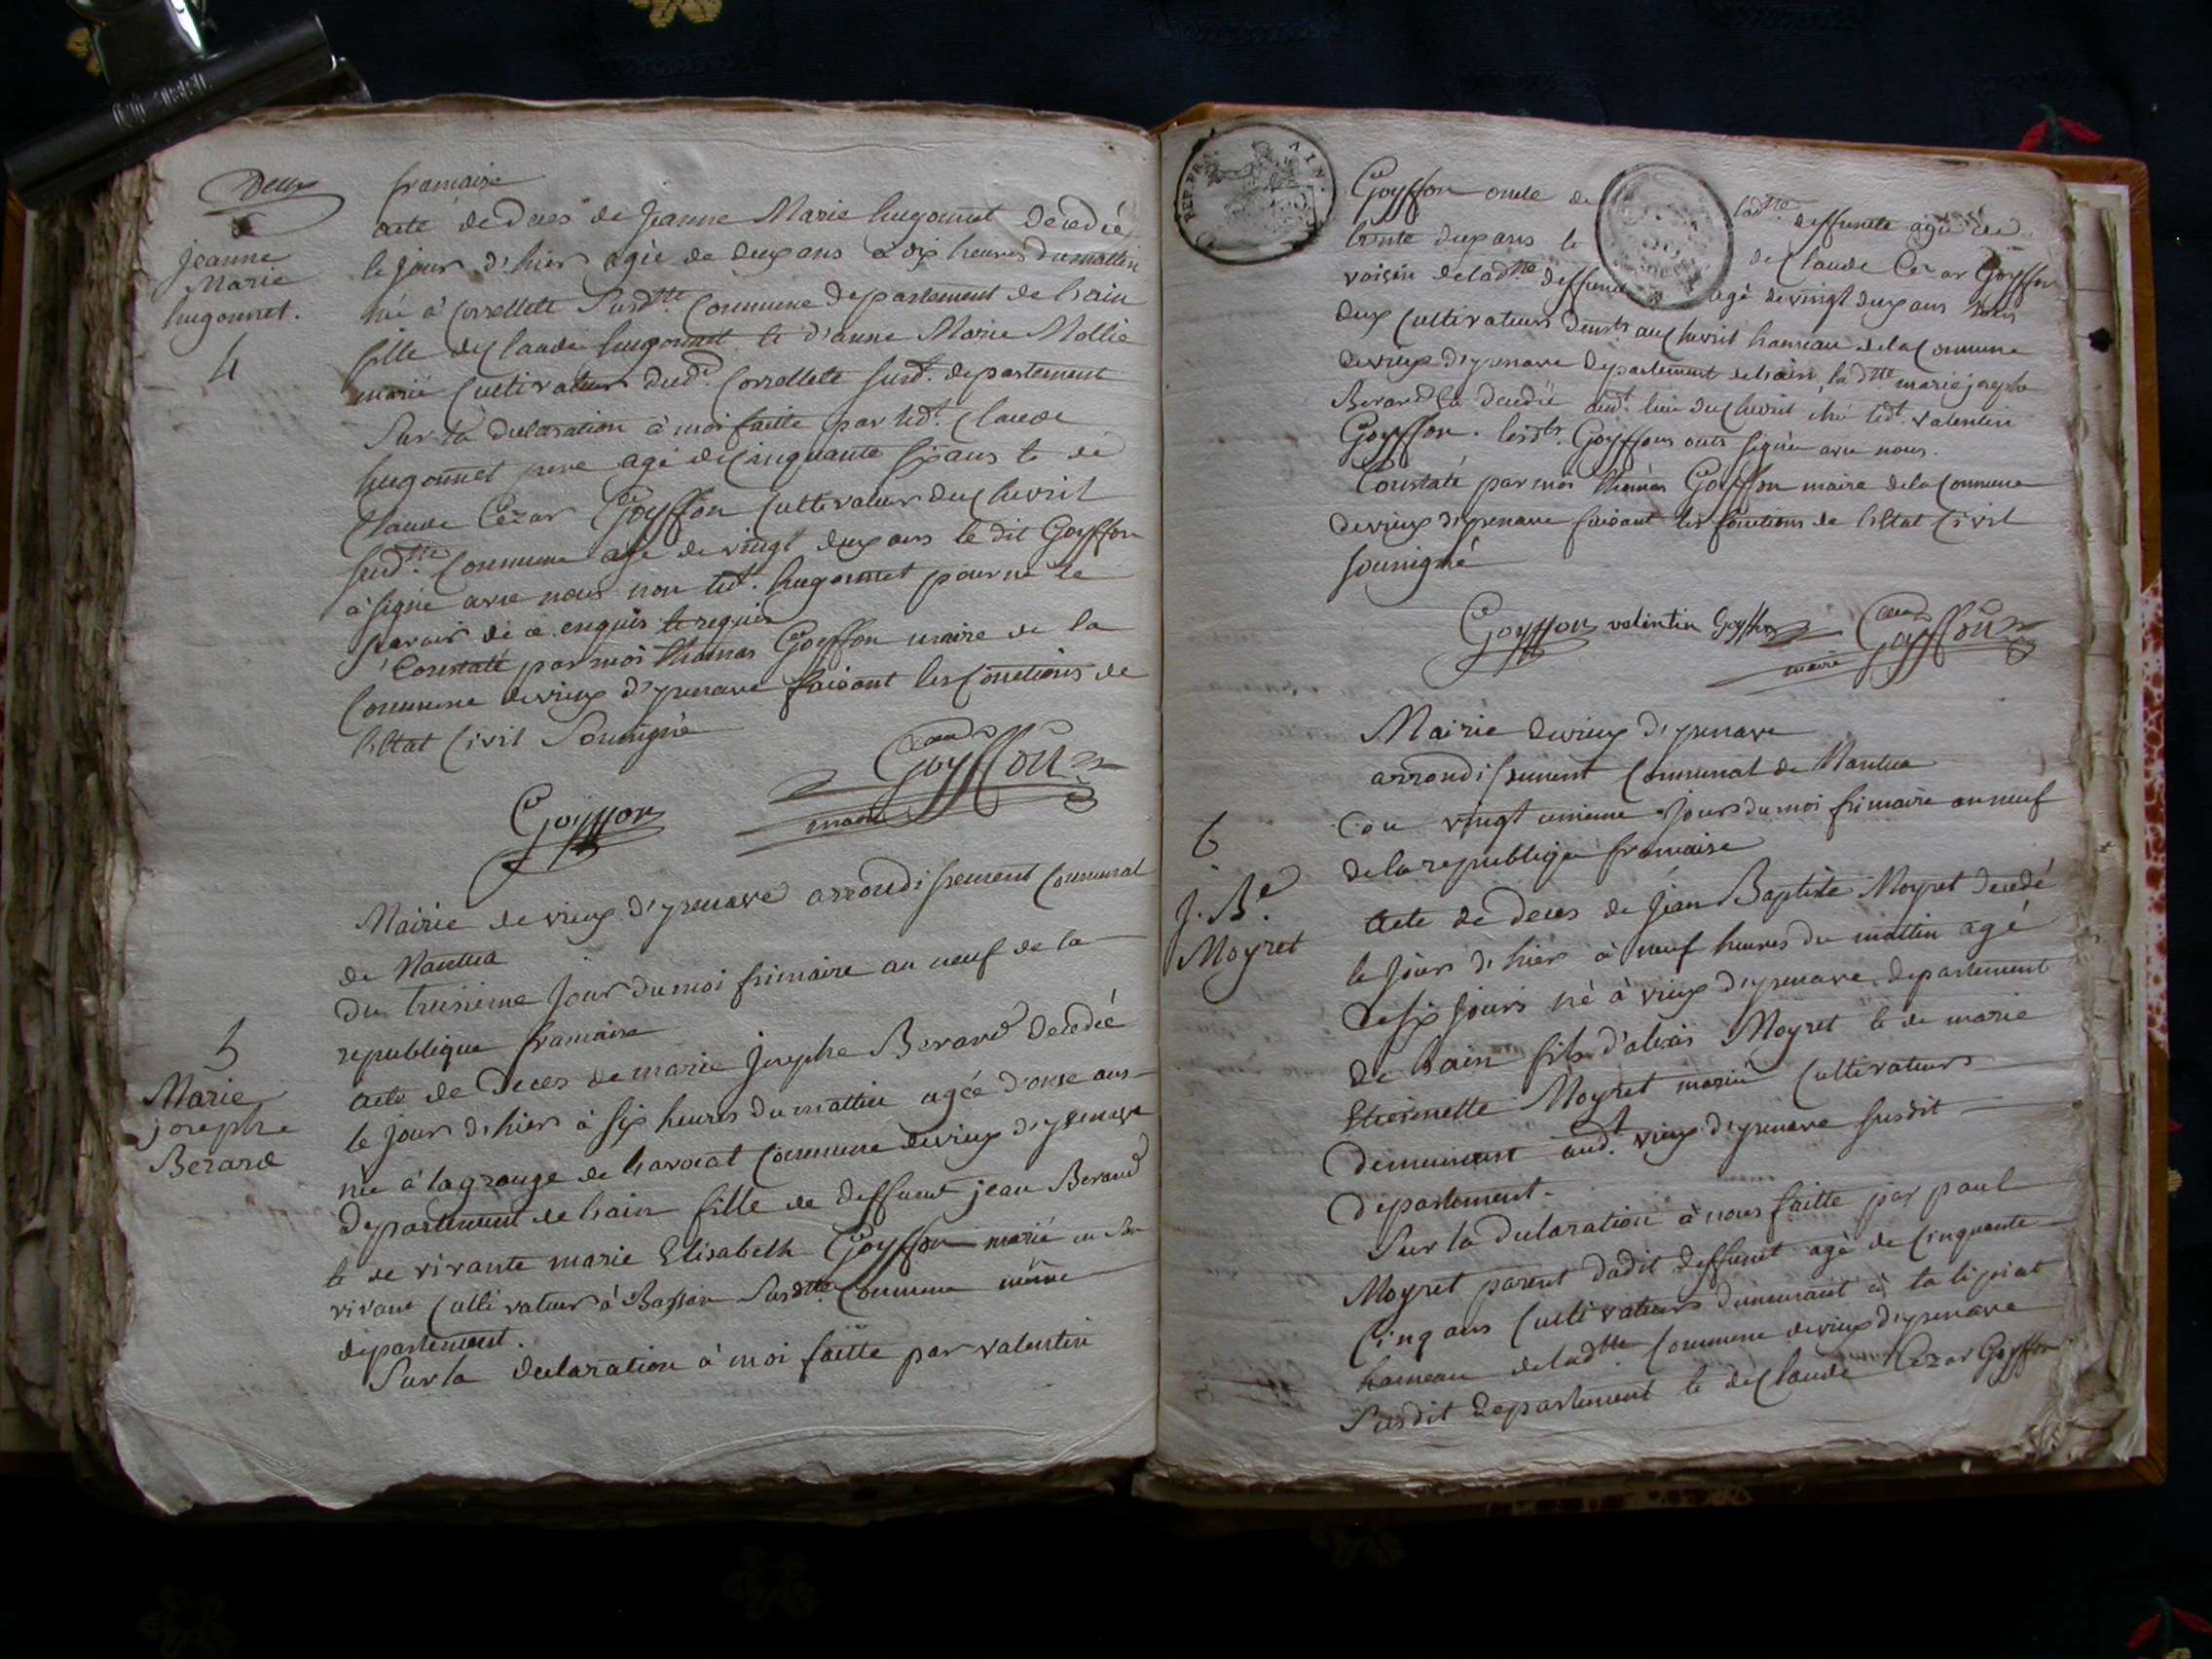 Deux
francaise
Jeanne
Marie
hugonnet.
4
acte de deces de Jeanne Marie hugonnet decedée
le jour d'hier agée de deux ans a dix heures du mattin
né à Corcellete susd.tte Commune departement de l'ain
fille de Claude hugonnet et d'anne Marie Mollie
marié Cultivateur dud.t Corcellete susd.t departement
Sur la declaration à moi faitte par led.t Claude
hugonnet pere agé de Cinquante six ans et de
Claude Cézar Goyffon Cultivateur du Chevril
susd.tte Commune agé de vingt deux ans le dit Goyffon
à signé avec nous non led.t hugonnet pour ne le
scavoir de ce enquis et requis
Constaté par moi thomas Goyffon maire de la
Commune de vieux d'yzenave faisant les fonctions de
l'état Civil Soussigné
Goyffon
Goyffon
maire
Mairie de vieux d'yzenave arrondissement Communal
de Nantua
Du treisieme jour du moi frimaire an neuf de la
republique francaise
5
Marie
josephe
Berard
acte de deces de marie josephe Berard decedée
le jour d'hier à six heures du mattin agée d'onse ans
née à la grange de l'avocat Commune de vieux d'yzenave
departement de l'ain fille de deffunt jean Berard
et de vivante marie Elisabeth Goyffon marié en son
vivant Cultivateur à Basson susd.tte Commune même
departement.
Sur la declaration à moi faitte par valentin
REP. FRA. AIN.
Goyffon oncle de lad.tte deffuncte agé de
trente deux ans et de Claude Cezar Goyffon
voisin de lad.tte deffuncte agé de vingt deux ans tous
deux Cultivateurs demts au Chevril hameau de la Commune
de vieux d'yzenave departement de l'ain, lad.tte marie josephe
Berard a decedée aud.t lieu du Chevril chés led.t valentin
Goyffon. lesd.ts Goyffons onts signée avec nous.
Constaté par moi thomas Goyffon maire de la Commune
de vieux d'yzenave faisant les fonctions de l'état Civil
soussigné
Goyffon valentin Goyffon
Goyffon
maire
Mairie de vieux d'yzenave
arrondissement Communal de Nantua
Du vingt unieme jour du moi frimaire an neuf
de la republique francaise
6
J. B.te
Moyret
Acte de deces de Jean Baptiste Moyret decedé
le jour d'hier à neuf heures du mattin agé
de six jours né à vieux d'yzenave departement
de l'ain fils d'alexis Moyret et de marie
Etiennette Moyret marié Cultivateurs
demeurant aud.t vieux d'yzenave susdit
departement.
Sur la declaration à nous faitte par paul
Moyret parent dudit deffunct agé de Cinquante
Cinq ans Cultivateur demeurant à
hameau de lad.tte Commune de vieux d'yzenave
susdit departement et de Claude Cezar Goyffon